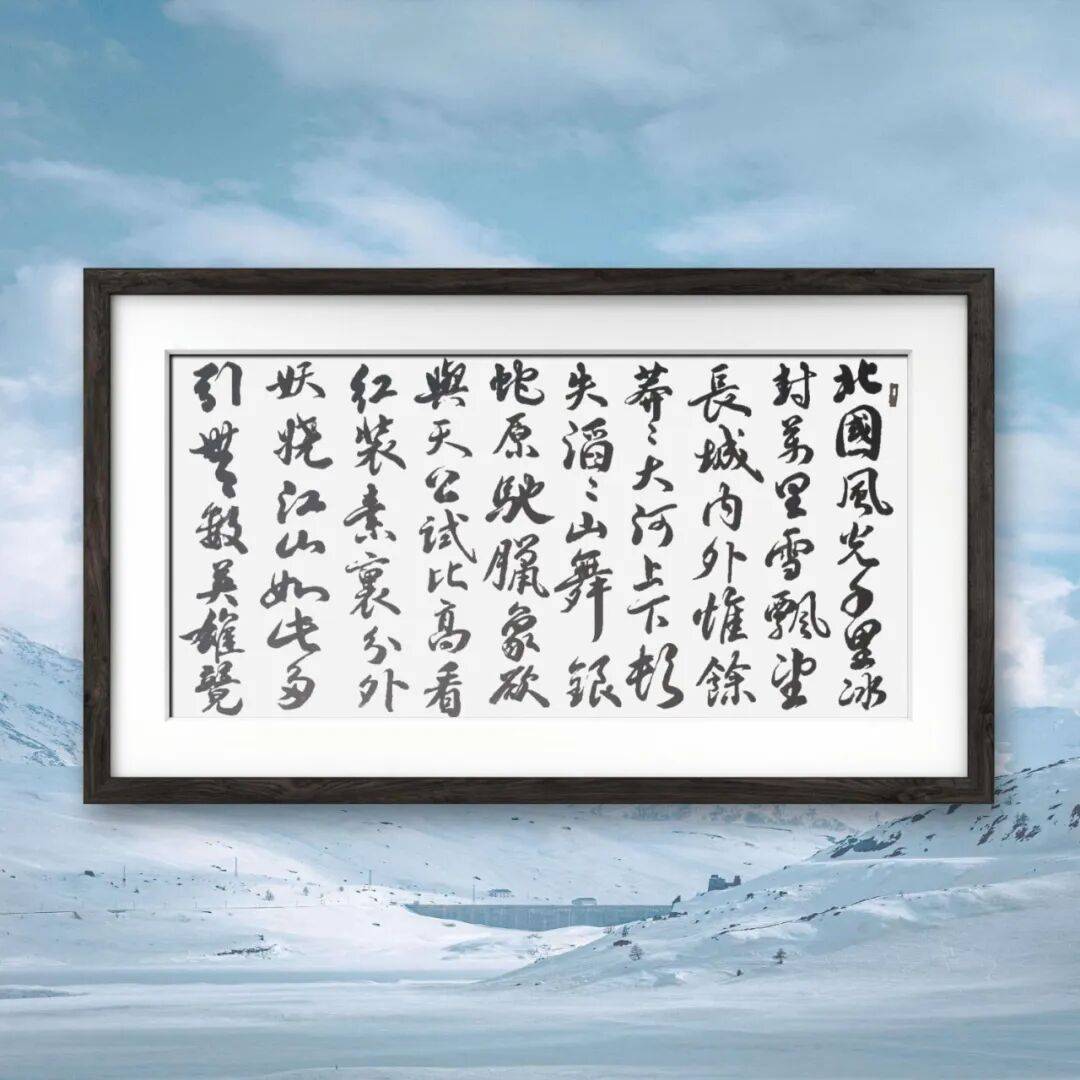 北國風光千里冰
封萬里雪飄望
長城内外惟餘
莽〻大河上下頓
失滔〻山舞銀
蛇原馳臘象欲
與天公試比高看
红装素裹分外
妖娆江山如此多
引無數英雄競